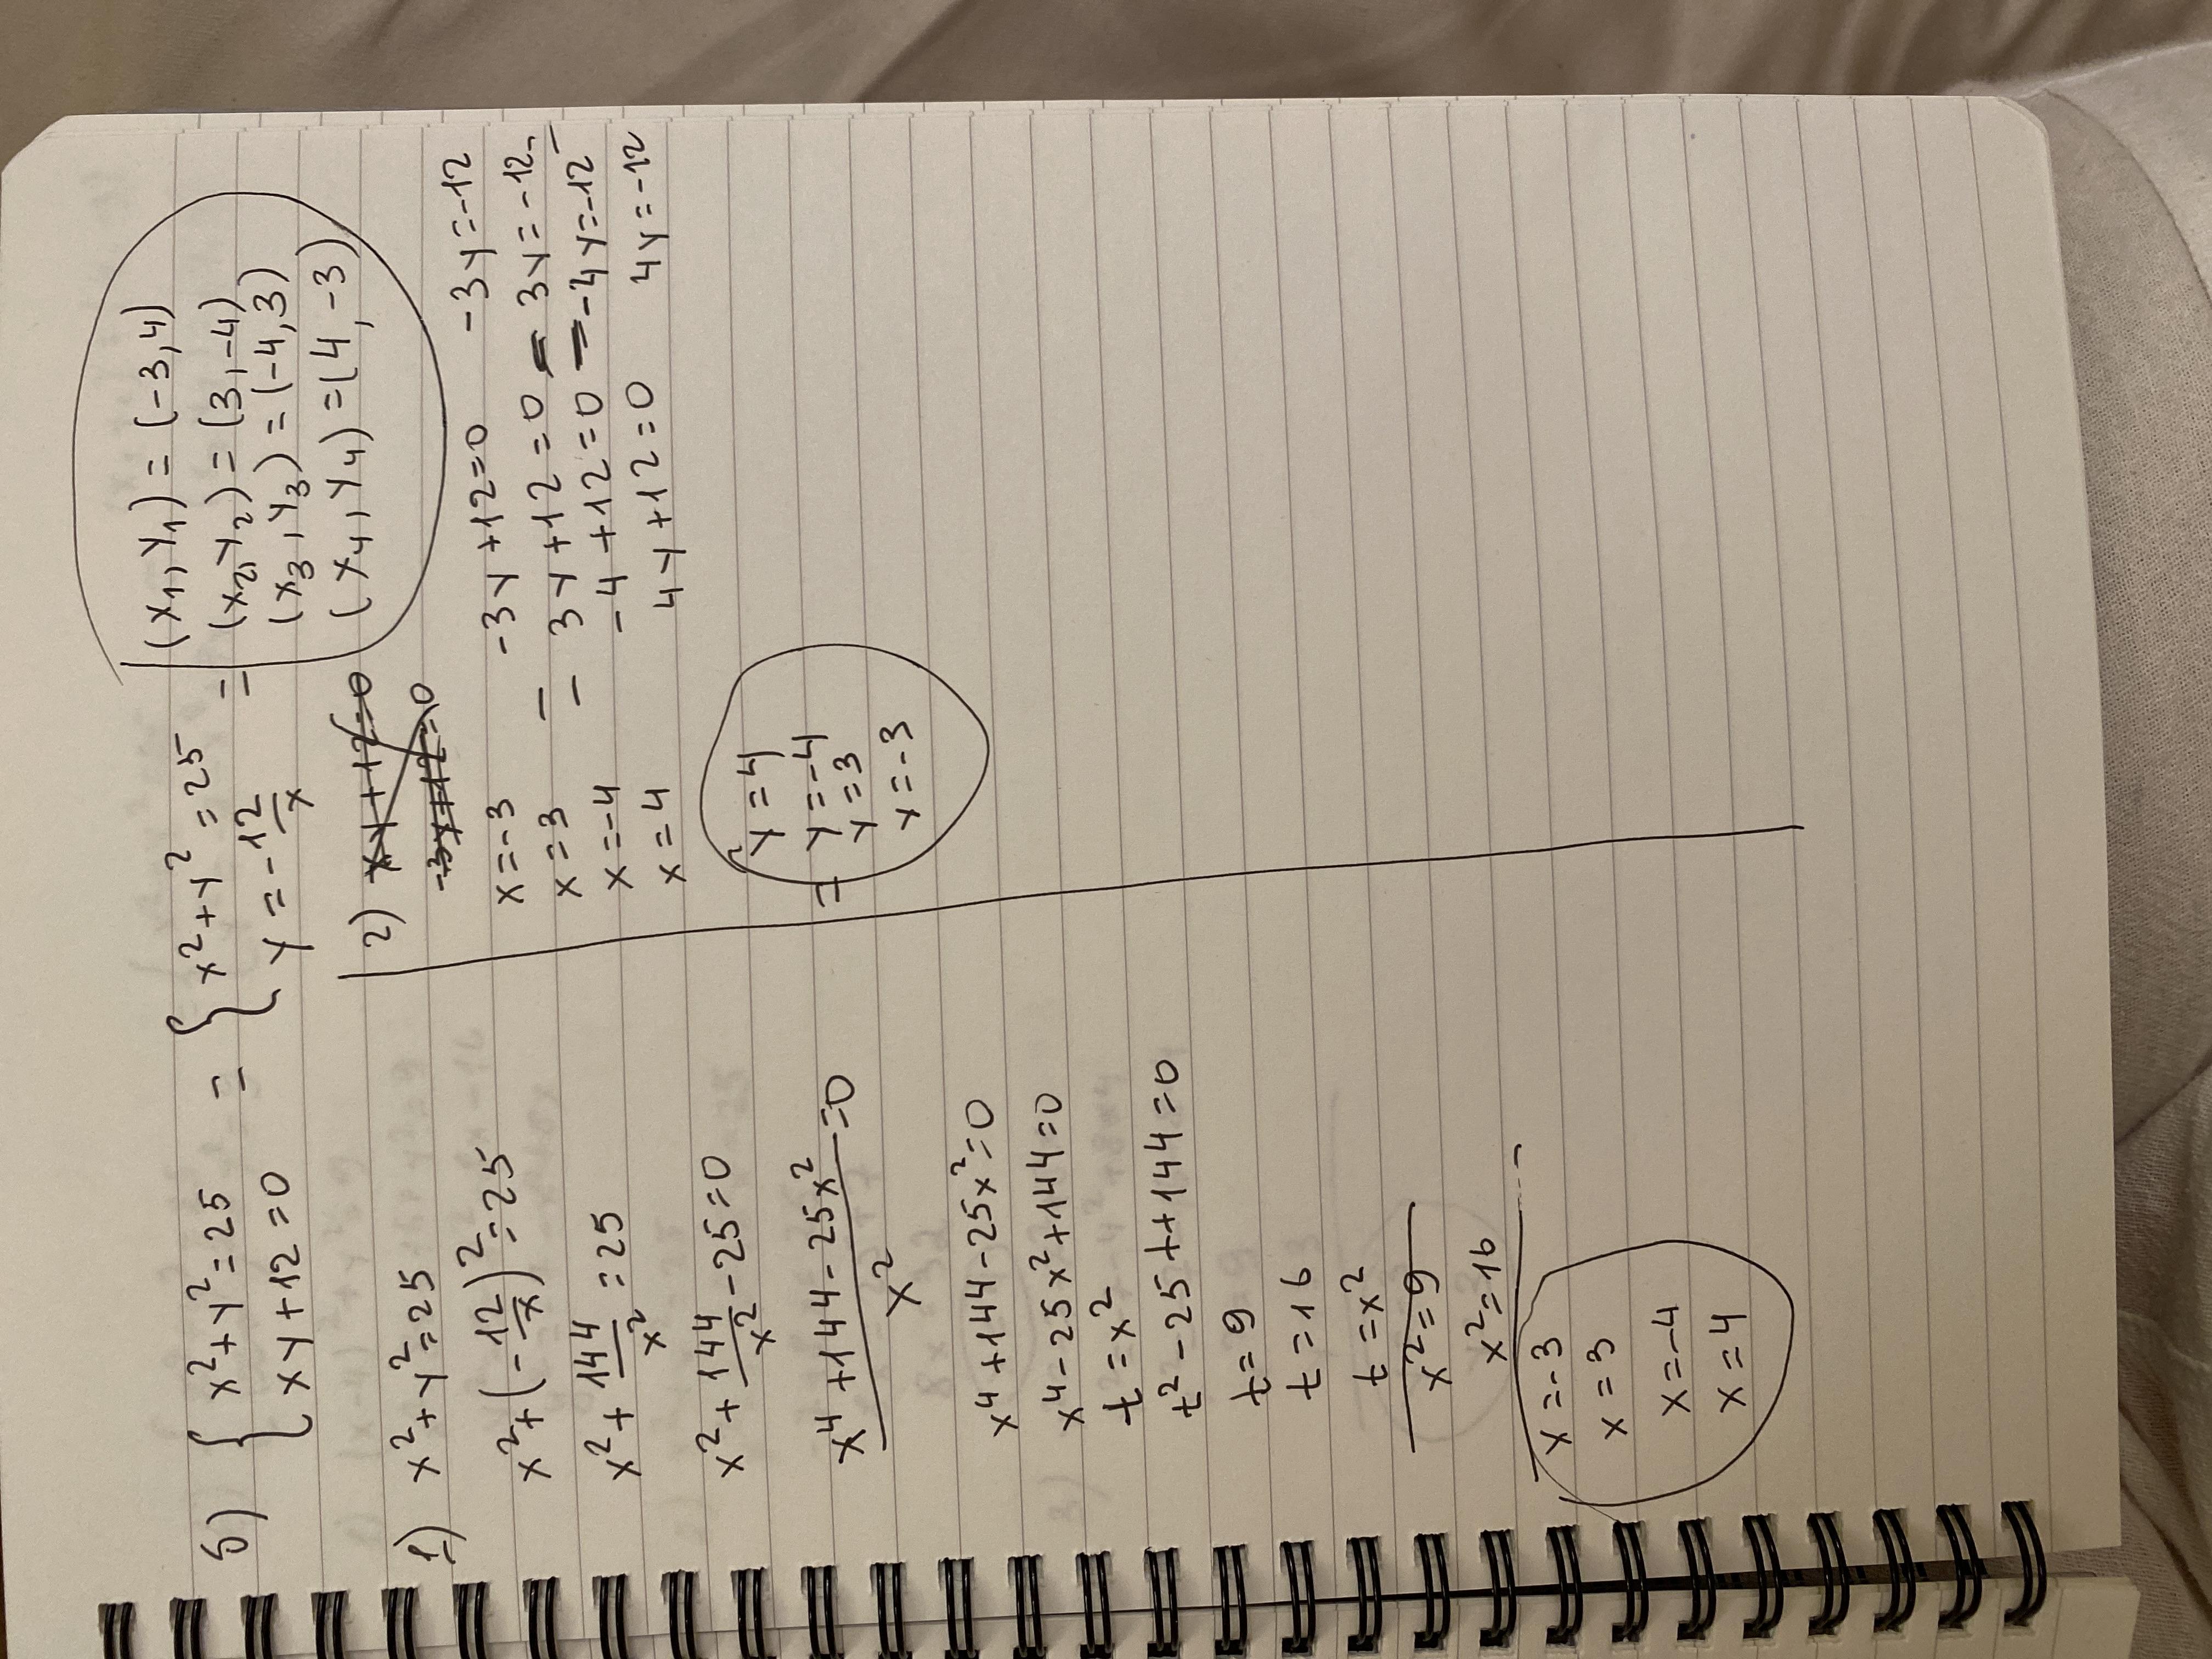 5) { x²+y²=25 = { x²+y²=25 = (x₁,y₁)=(-3,4)
xy+12=0 y=-12/x (x₂,y₂)=(3,-4)
(x₃,y₃)=(-4,3)
(x₄,y₄)=(4,-3)
1) x²+y²=25
x²+(-12/x)²=25
x²+144/x²=25
x²+144/x²-25=0
(x⁴+144-25x²)/x²=0
x⁴+144-25x²=0
x⁴-25x²+144=0
t=x²
t²-25t+144=0
t=9
t=16
t=x²
x²=9
x²=16
x=-3
x=3
x=-4
x=4
2) xy+12=0
-3y+12=0
x=-3 -3y+12=0 -3y=-12
x=3 - 3y+12=0 - 3y=-12
x=-4 - -4+12=0 - -4y=-12
x=4 4y+12=0 4y=-12
y=4
= y=-4
y=3
y=-3